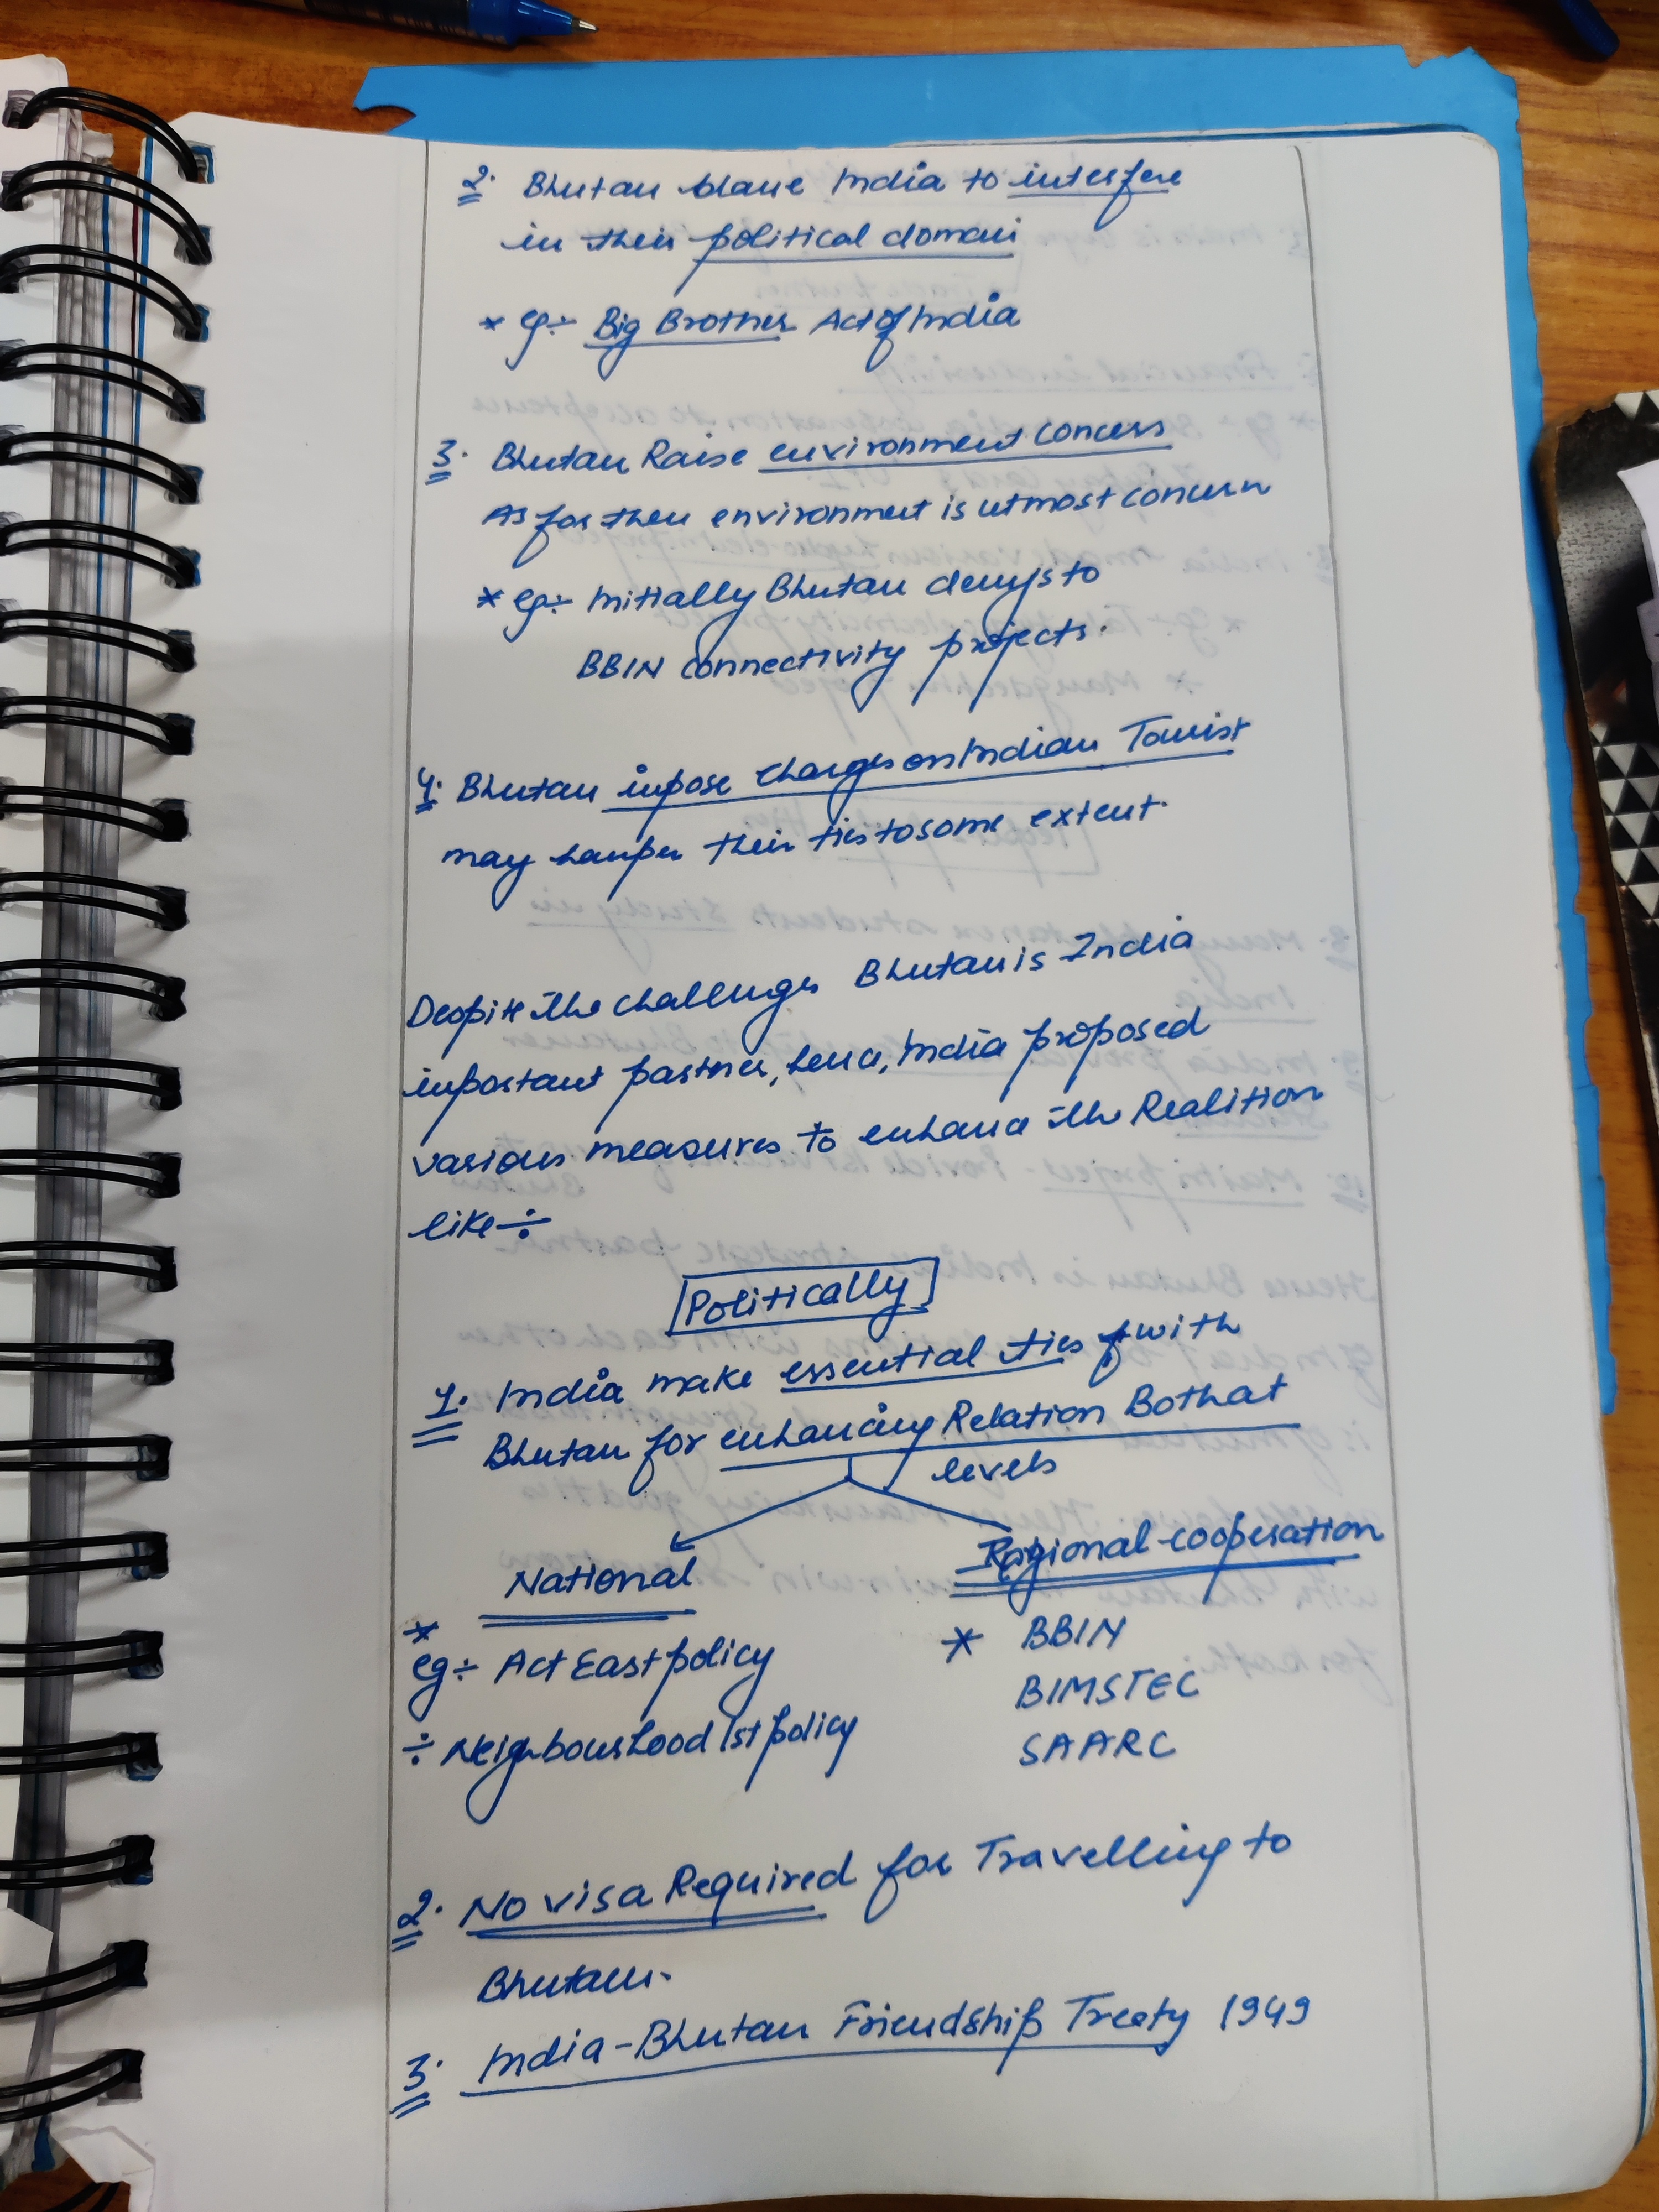 2. Bhutan blame India to interfere
in their political domain
* eg÷ Big Brother Act of India
3. Bhutan Raise environment concerns
As for them environment is utmost concern
* eg÷ Initially Bhutan denys to
BBIN connectivity projects.
4. Bhutan impose charges on Indian Tourist
may hamper their ties to some extent.
Despite the challenges Bhutan is India
important partner, hence, India proposed
various measures to enhance the Realition
like÷
Politically
1. India make essential ties with
Bhutan for enhancing Relation Both at
levels
National
Regional cooperation
*
eg÷ Act East policy
* BBIN
BIMSTEC
÷ Neighbourhood 1st policy
SAARC
2. No visa Required for Travelling to
Bhutan.
3. India-Bhutan Friendship Treaty 1949